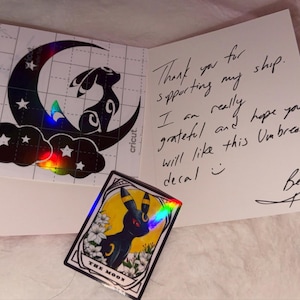 Thank you for
supporting my ship.
I am really
grateful and hope you
will like this Umbreon
decal :)
cricut
THE MOON